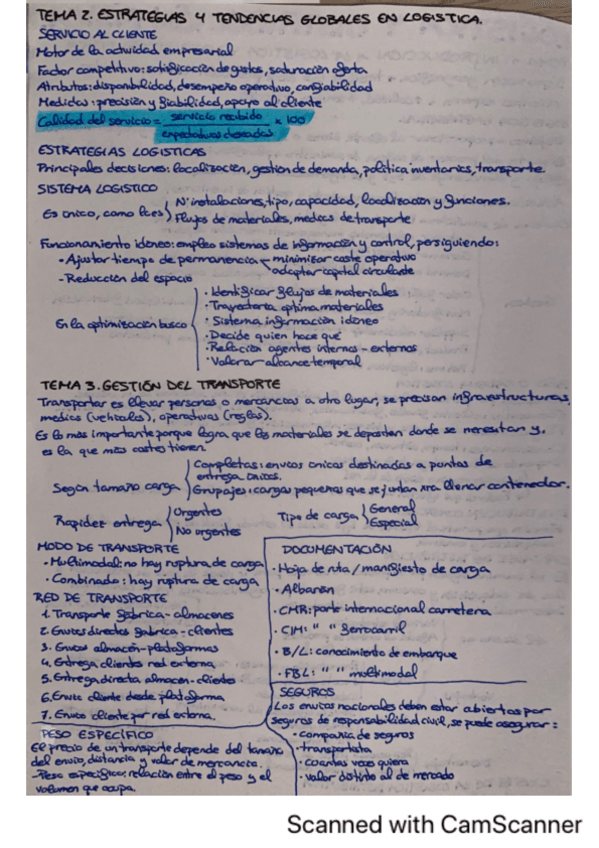 TEMA 2. ESTRATEGIAS Y TENDENCIAS GLOBALES EN LOGISTICA.
SERVICIO AL CLIENTE
Motor de la actividad empresarial
Factor competitivo: satisfacción de gustos, saturación oferta
Atributos: disponibilidad, desempeño operativo, confiabilidad
Medidas: precisión y fiabilidad, apoyo al cliente
Calidad del servicio = servicio recibido / expectativas deseadas x 100
ESTRATEGIAS LOGISTICAS
Principales decisiones: localización, gestión de demanda, política inventarios, transporte.
SISTEMA LOGISTICO
Es único, como lo es
Nº instalaciones, tipo, capacidad, localización y funciones.
Flujos de materiales, medios de transporte
Funcionamiento idóneo: empleo sistemas de información y control, persiguiendo:
- Ajustar tiempo de permanencia
minimizar coste operativo
adaptar capital circulante
- Reducción del espacio
En la optimización busco
· Identificar flujos de materiales
· Trayectoria óptima materiales
· Sistema información idóneo
· Decide quien hace qué
· Relación agentes internos - externos
· Valorar alcance temporal
TEMA 3. GESTIÓN DEL TRANSPORTE
Transportar es llevar personas o mercancías a otro lugar, se precisan infraestructuras,
medios (vehículos), operativas (reglas).
Es lo más importante porque logra que los materiales se depositen donde se necesitan y,
es la que más costes tienen.
Según tamaño carga
Completas: envíos únicos destinados a puntos de
entrega únicos.
Grupajes: cargas pequeñas que se juntan para llenar contenedor.
Rapidez entrega
Urgentes
No urgentes
Tipo de carga
General
Especial
MODO DE TRANSPORTE
· Multimodal: no hay ruptura de carga
· Combinado: hay ruptura de carga
RED DE TRANSPORTE
1. Transporte fábrica - almacenes
2. Envíos directos fábrica - clientes
3. Envíos almacén - plataformas
4. Entrega clientes red externa
5. Entrega directa almacén - cliente
6. Envío cliente desde plataforma
7. Envío cliente por red externa.
PESO ESPECÍFICO
El precio de un transporte depende del tamaño
del envío, distancia y valor de mercancía.
- Peso específico: relación entre el peso y el
volumen que ocupa.
DOCUMENTACIÓN
· Hoja de ruta / manifiesto de carga
· Albarán
· CMR: porte internacional carretera
· CIM: " " ferrocarril
· B/L: conocimiento de embarque
· FBL: " " multimodal
SEGUROS
Los envíos nacionales deben estar abiertos por
seguros de responsabilidad civil, se puede asegurar:
· compañía de seguros
· transportista
· cuantas veces quiera
· valor distinto al de mercado
Scanned with CamScanner